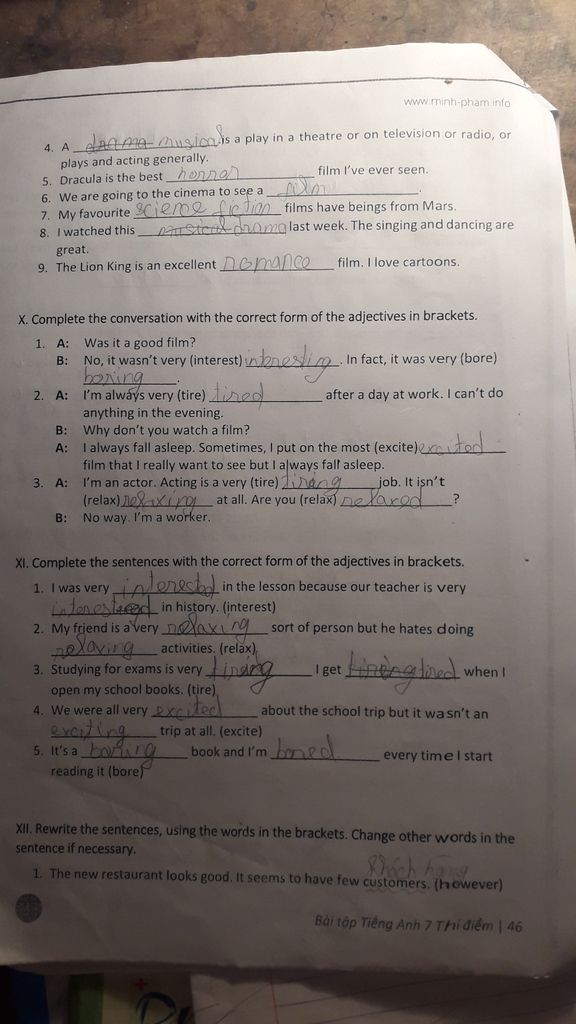 www.minh-pham.info
4. A drama musical is a play in a theatre or on television or radio, or
plays and acting generally.
5. Dracula is the best horror film I've ever seen.
6. We are going to the cinema to see a film.
7. My favourite science fiction films have beings from Mars.
8. I watched this musical drama last week. The singing and dancing are
great.
9. The Lion King is an excellent romance film. I love cartoons.
X. Complete the conversation with the correct form of the adjectives in brackets.
1. A: Was it a good film?
B: No, it wasn't very (interest) interesting. In fact, it was very (bore)
boring.
2. A: I'm always very (tire) tired after a day at work. I can't do
anything in the evening.
B: Why don't you watch a film?
A: I always fall asleep. Sometimes, I put on the most (excite) excited
film that I really want to see but I always fall asleep.
3. A: I'm an actor. Acting is a very (tire) tiring job. It isn't
(relax) relaxing at all. Are you (relax) relaxed?
B: No way. I'm a worker.
XI. Complete the sentences with the correct form of the adjectives in brackets.
1. I was very interested in the lesson because our teacher is very
interested in history. (interest)
2. My friend is a very relaxing sort of person but he hates doing
relaxing activities. (relax)
3. Studying for exams is very tiring I get tiring tired when I
open my school books. (tire)
4. We were all very excited about the school trip but it wasn't an
exciting trip at all. (excite)
5. It's a boring book and I'm bored every time I start
reading it (bore)
XII. Rewrite the sentences, using the words in the brackets. Change other words in the
sentence if necessary.
khách hàng
1. The new restaurant looks good. It seems to have few customers. (however)
Bài tập Tiếng Anh 7 Thí điểm | 46